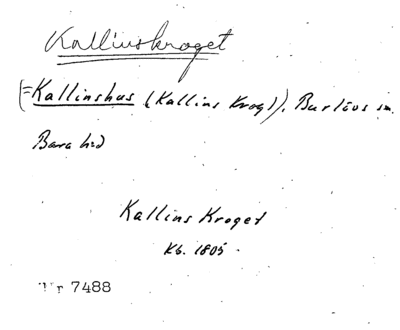 Kallinskroget
(=Kallinshus (Kallins Krog), Burlövs sn.
Bara hd
Kallins Kroget
Kb. 1805.
Nr 7488